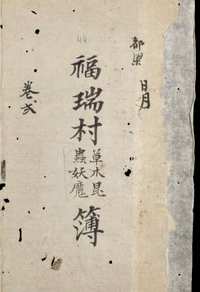 都梁
日月
福瑞村
草木昆
蟲妖魔
簿
卷弐